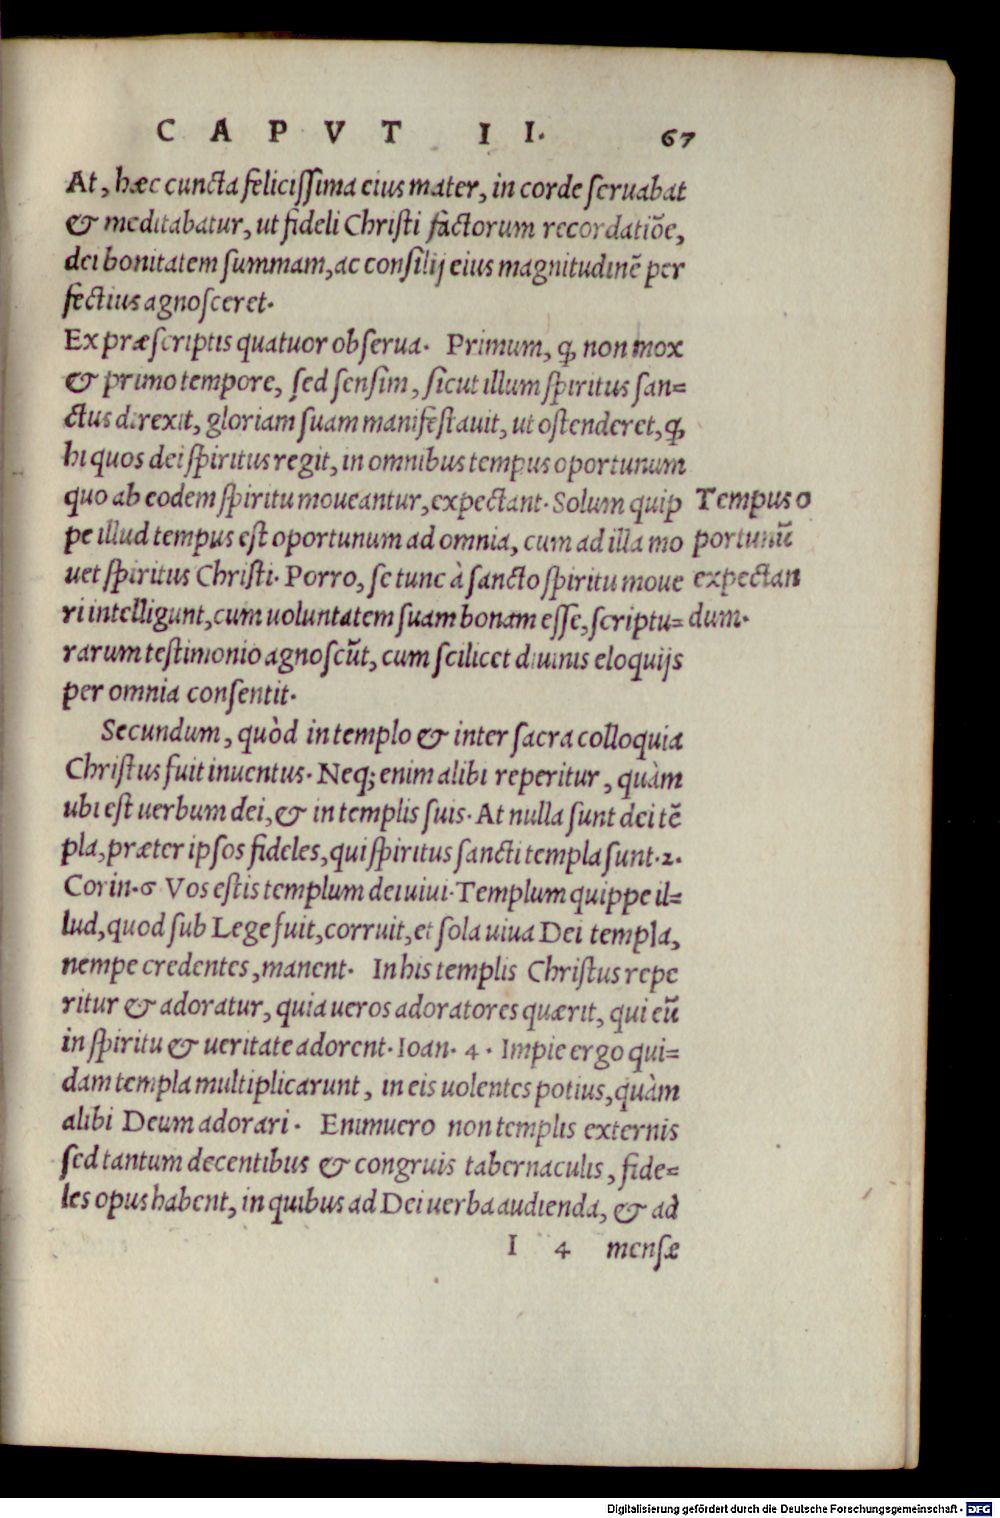 CAPVT II. 67
At, hæc cuncta felicissima eius mater, in corde seruabat
& meditabatur, ut fideli Christi factorum recordatiõe,
dei bonitatem summam, ac consilij eius magnitudinẽ per
fectius agnosceret.
Ex præscriptis quatuor obserua. Primum, ꝙ non mox
& primo tempore, sed sensim, sicut illum spiritus san=
ctus direxit, gloriam suam manifestauit, ut ostenderet, ꝙ
hi quos dei spiritus regit, in omnibus tempus oportunum
quo ab eodem spiritu moueantur, expectant. Solum quip
pe illud tempus est oportunum ad omnia, cum ad illa mo
uet spiritus Christi. Porro, se tunc à sancto spiritu moue
ri intelligunt, cum uoluntatem suam bonam esse, scriptu=
rarum testimonio agnoscũt, cum scilicet diuinis eloquijs
per omnia consentit.
Tempus o
portunũ
expectan
dum.
Secundum, quòd in templo & inter sacra colloquia
Christus fuit inuentus. Neq; enim alibi reperitur, quàm
ubi est uerbum dei, & in templis suis. At nulla sunt dei tẽ
pla, præter ipsos fideles, qui spiritus sancti templa sunt. 2.
Corin. 6 Vos estis templum dei uiui. Templum quippe il=
lud, quod sub Lege fuit, corruit, et sola uiua Dei templa,
nempe credentes, manent. In his templis Christus repe
ritur & adoratur, quia ueros adoratores quærit, qui eũ
in spiritu & ueritate adorent. Ioan. 4. Impie ergo qui=
dam templa multiplicarunt, in eis uolentes potius, quàm
alibi Deum adorari. Enimuero non templis externis
sed tantum decentibus & congruis tabernaculis, fide=
les opus habent, in quibus ad Dei uerba audienda, & ad
I 4 mensæ
Digitalisierung gefördert durch die Deutsche Forschungsgemeinschaft - DFG